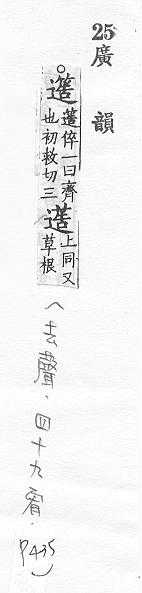 25 廣韻
○簉簉倅一曰齊也初救切三䔏上同又草根
（去聲．四十九宥．P435）